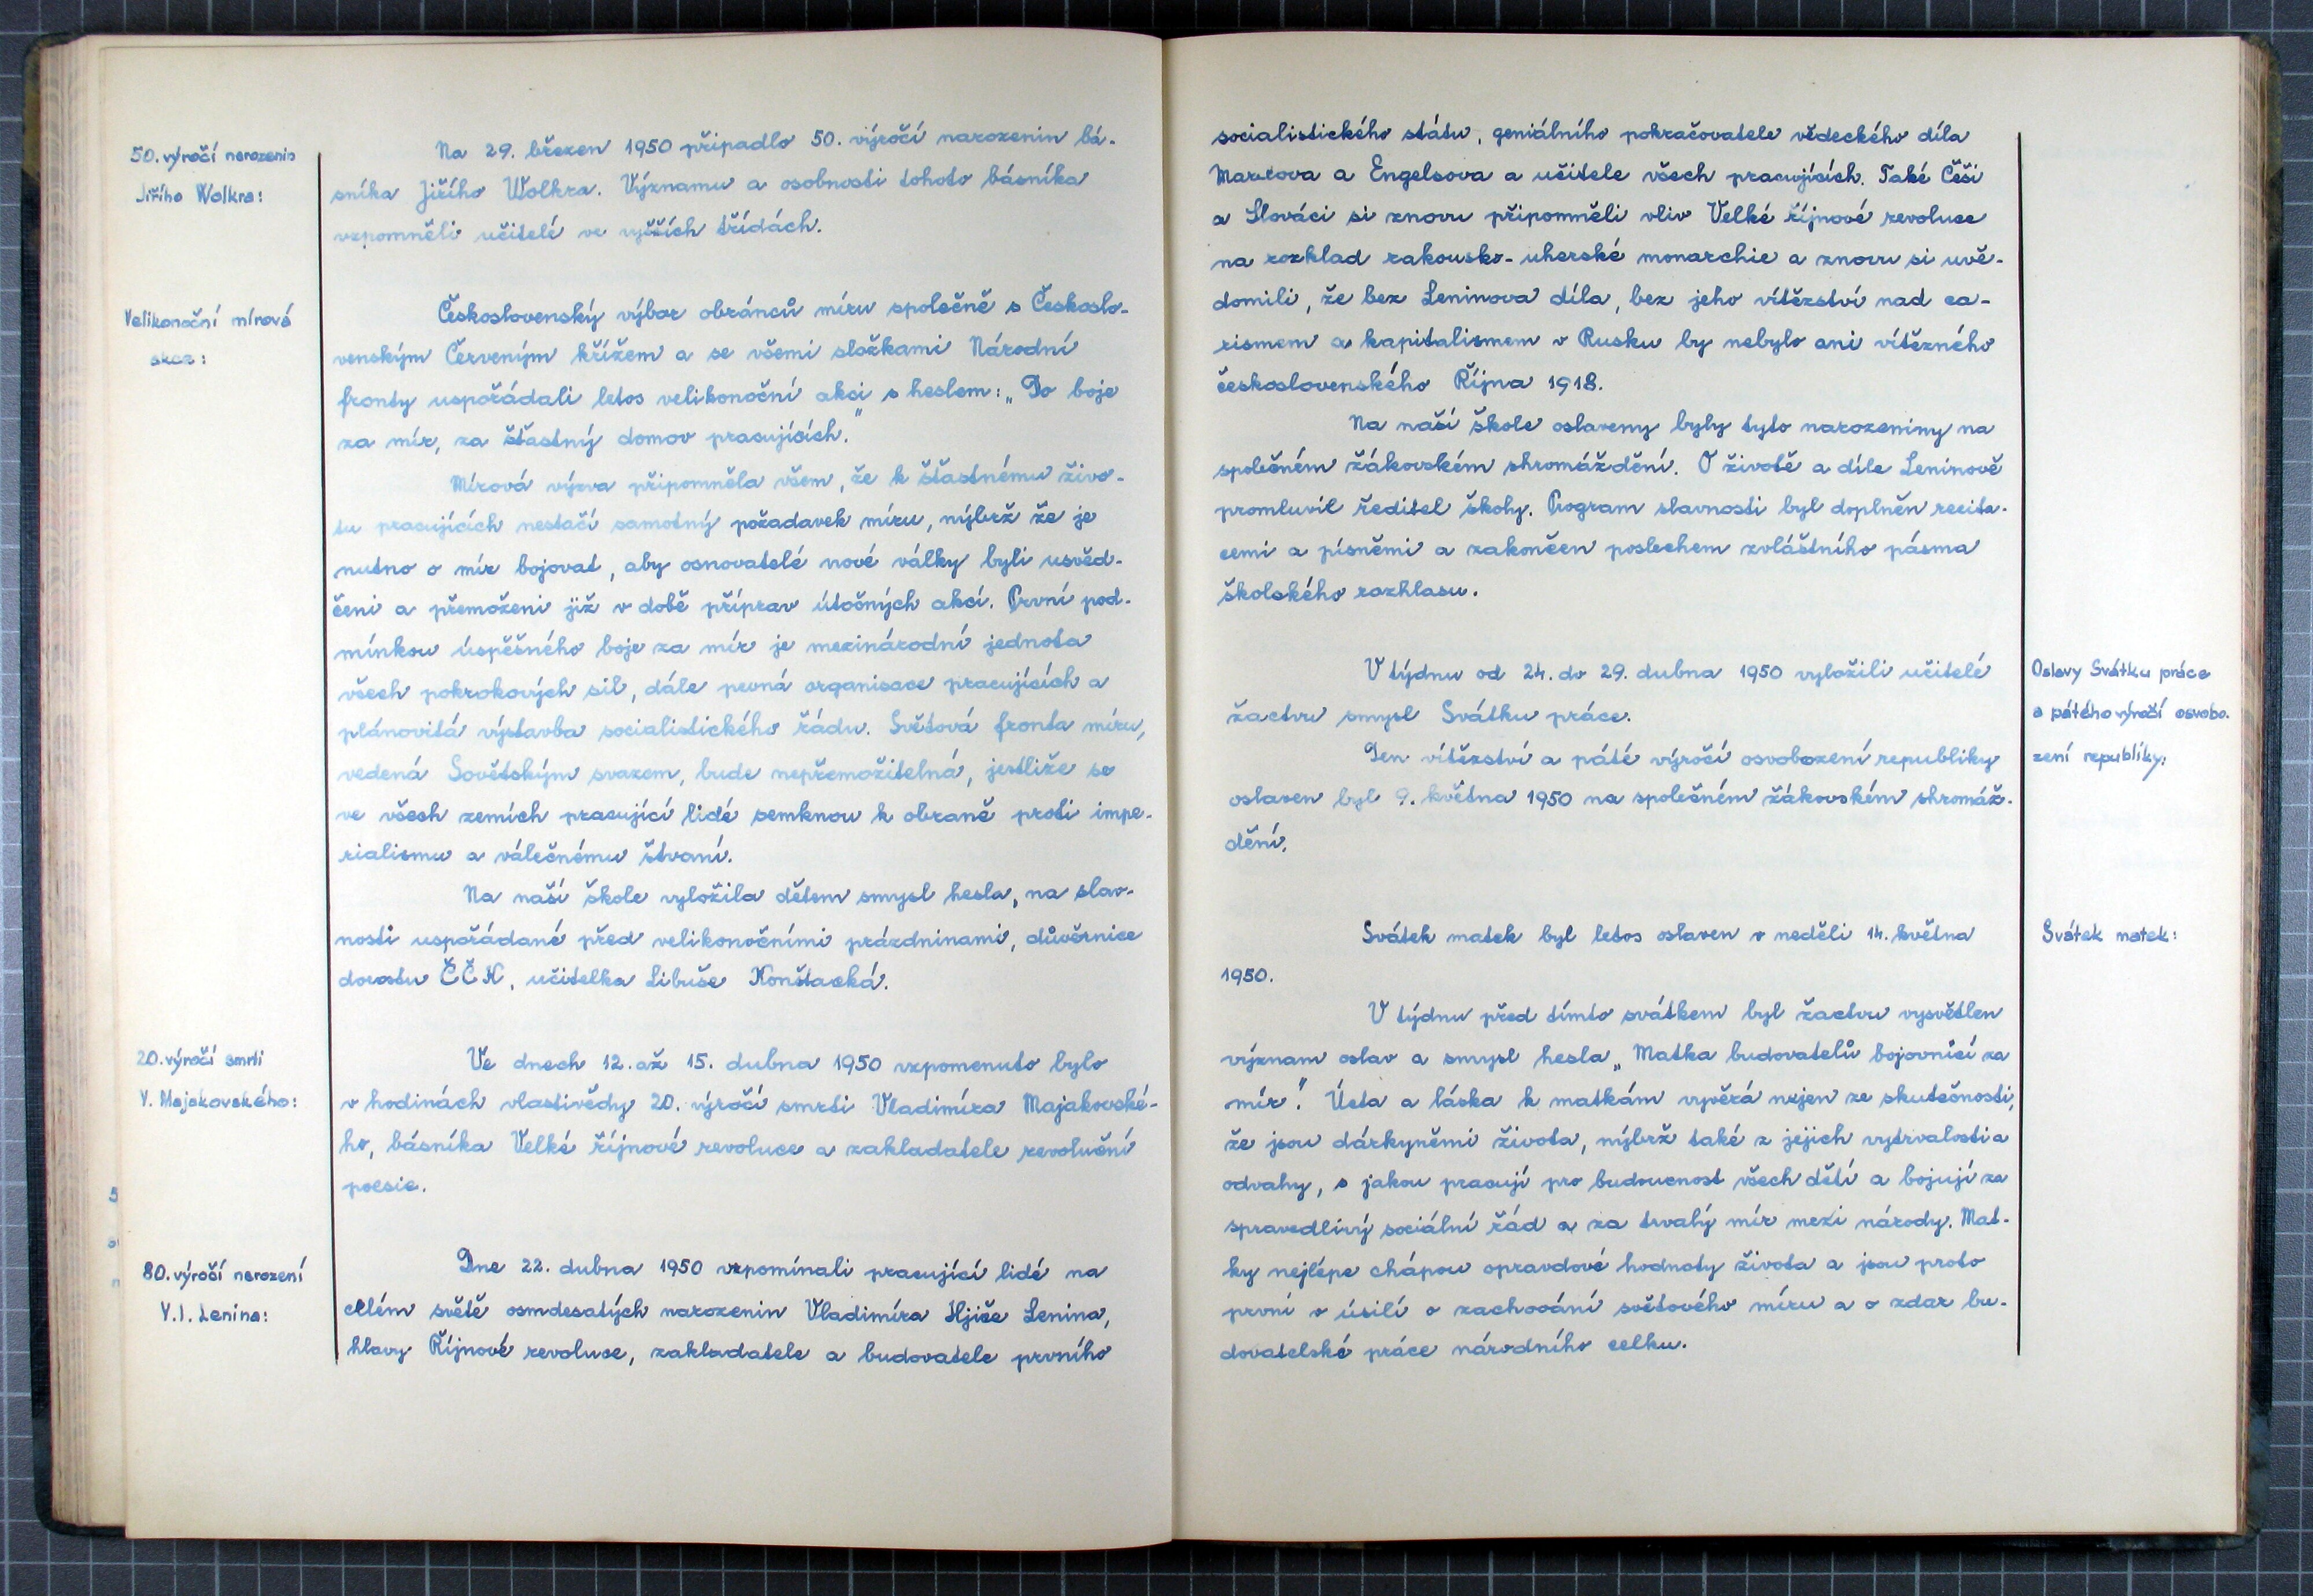 50. výročí narozenin
Jiřího Wolkra:
Na 29. březen 1950 připadlo 50. výročí narozenin bá-
sníka Jiřího Wolkra. Významu a osobnosti tohoto básníka
vzpomněli učitelé ve vyšších třídách.
Velikonoční mírová
akce:
Československý výbor obránců míru společně s Českoslo-
venským Červeným křížem a se všemi složkami Národní
fronty uspořádali letos velikonoční akci s heslem: „Do boje
za mír, za šťastný domov pracujících."
Mírová výzva připomněla všem, že k šťastnému živo-
tu pracujících nestačí samotný požadavek míru, nýbrž že je
nutno o mír bojovat, aby osnovatelé nové války byli usvěd-
čeni a přemoženi již v době příprav útočných akcí. První pod-
mínkou úspěšného boje za mír je mezinárodní jednota
všech pokrokových sil, dále pevná organisace pracujících a
plánovitá výstavba socialistického řádu. Světová fronta míru,
vedená Sovětským svazem, bude nepřemožitelná, jestliže se
ve všech zemích pracující lidé semknou k obraně proti impe-
rialismu a válečnému štvaní.
Na naší škole vyložila dětem smysl hesla, na slav-
nosti uspořádané před velikonočními prázdninami, důvěrnice
dorostu ČČK, učitelka Libuše Konštacká.
20. výročí smrti
V. Majakovského:
Ve dnech 12. až 15. dubna 1950 vzpomenuto bylo
v hodinách vlastivědy 20. výročí smrti Vladimíra Majakovské-
ho, básníka Velké říjnové revoluce a zakladatele revoluční
poesie.
80. výročí narození
V. I. Lenina:
Dne 22. dubna 1950 vzpomínali pracující lidé na
celém světě osmdesátých narozenin Vladimíra Iljiče Lenina,
hlavy Říjnové revoluce, zakladatele a budovatele prvního
socialistického státu, geniálního pokračovatele vědeckého díla
Marxova a Engelsova a učitele všech pracujících. Také Češi
a Slováci si znovu připomněli vliv Velké říjnové revoluce
na rozklad rakousko-uherské monarchie a znovu si uvě-
domili, že bez Leninova díla, bez jeho vítězství nad ca-
rismem a kapitalismem v Rusku by nebylo ani vítězného
československého Října 1918.
Na naší škole oslaveny byly tyto narozeniny na
společném žákovském shromáždění. O životě a díle Leninově
promluvil ředitel školy. Program slavnosti byl doplněn recita-
cemi a písněmi a zakončen poslechem zvláštního pásma
školského rozhlasu.
V týdnu od 24. do 29. dubna 1950 vyložili učitelé
žactvu smysl Svátku práce.
Oslavy Svátku práce
a pátého výročí osvobo-
zení republiky:
Den vítězství a páté výročí osvobození republiky
oslaven byl 9. května 1950 na společném žákovském shromáž-
dění.
Svátek matek byl letos oslaven v neděli 14. května
1950.
Svátek matek:
V týdnu před tímto svátkem byl žactvu vysvětlen
význam oslav a smysl hesla „Matka budovatelů bojovnicí za
mír". Úcta a láska k matkám vyvěrá nejen ze skutečnosti,
že jsou dárkyněmi života, nýbrž také z jejich vytrvalosti a
odvahy, s jakou pracují pro budoucnost všech dětí a bojují za
spravedlivý sociální řád a za trvalý mír mezi národy. Mat-
ky nejlépe chápou opravdové hodnoty života a jsou proto
první v úsilí o zachování světového míru a o zdar bu-
dovatelské práce národního celku.